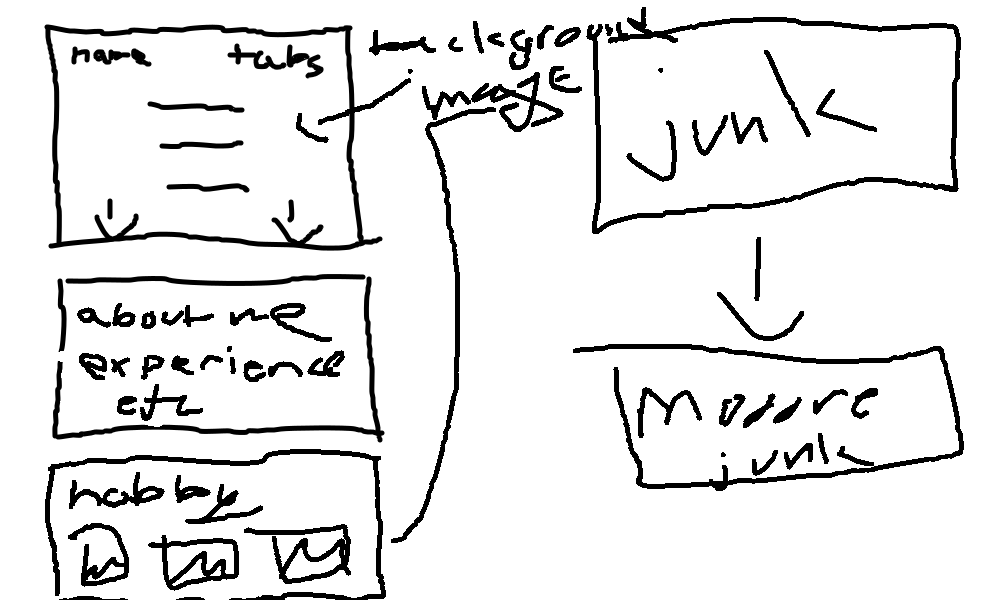 name tabs
background
image
about me
experience
etc
hobby
junk
moore
junk